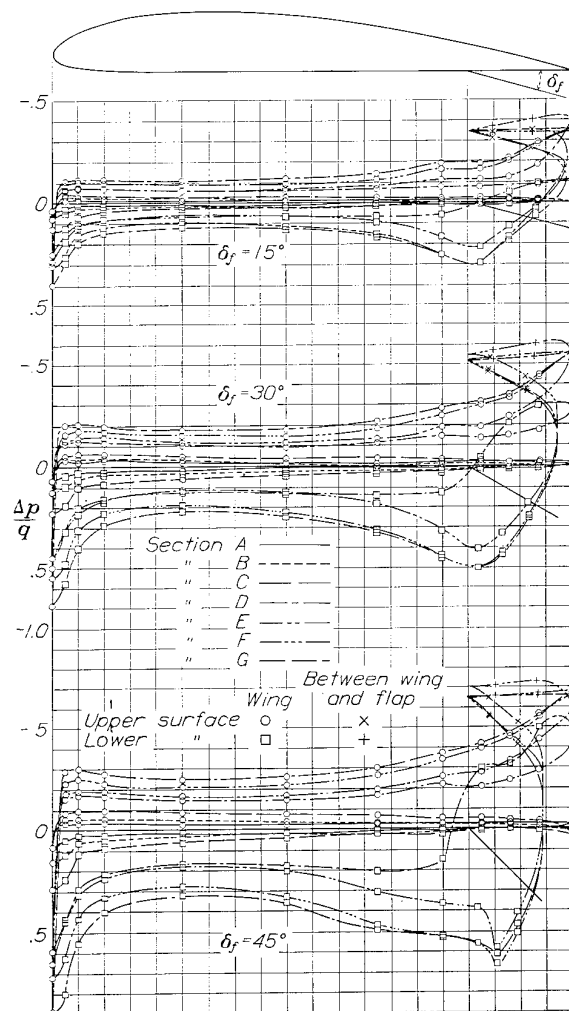 δf
-.5
0
δf = 15°
.5
-.5
δf = 30°
0
Δp
q
Section A
" B
" C
.5
" D
" E
-1.0
" F
" G
Between wing
Wing and flap
Upper surface ○ ×
Lower " □ +
-.5
0
.5
δf = 45°